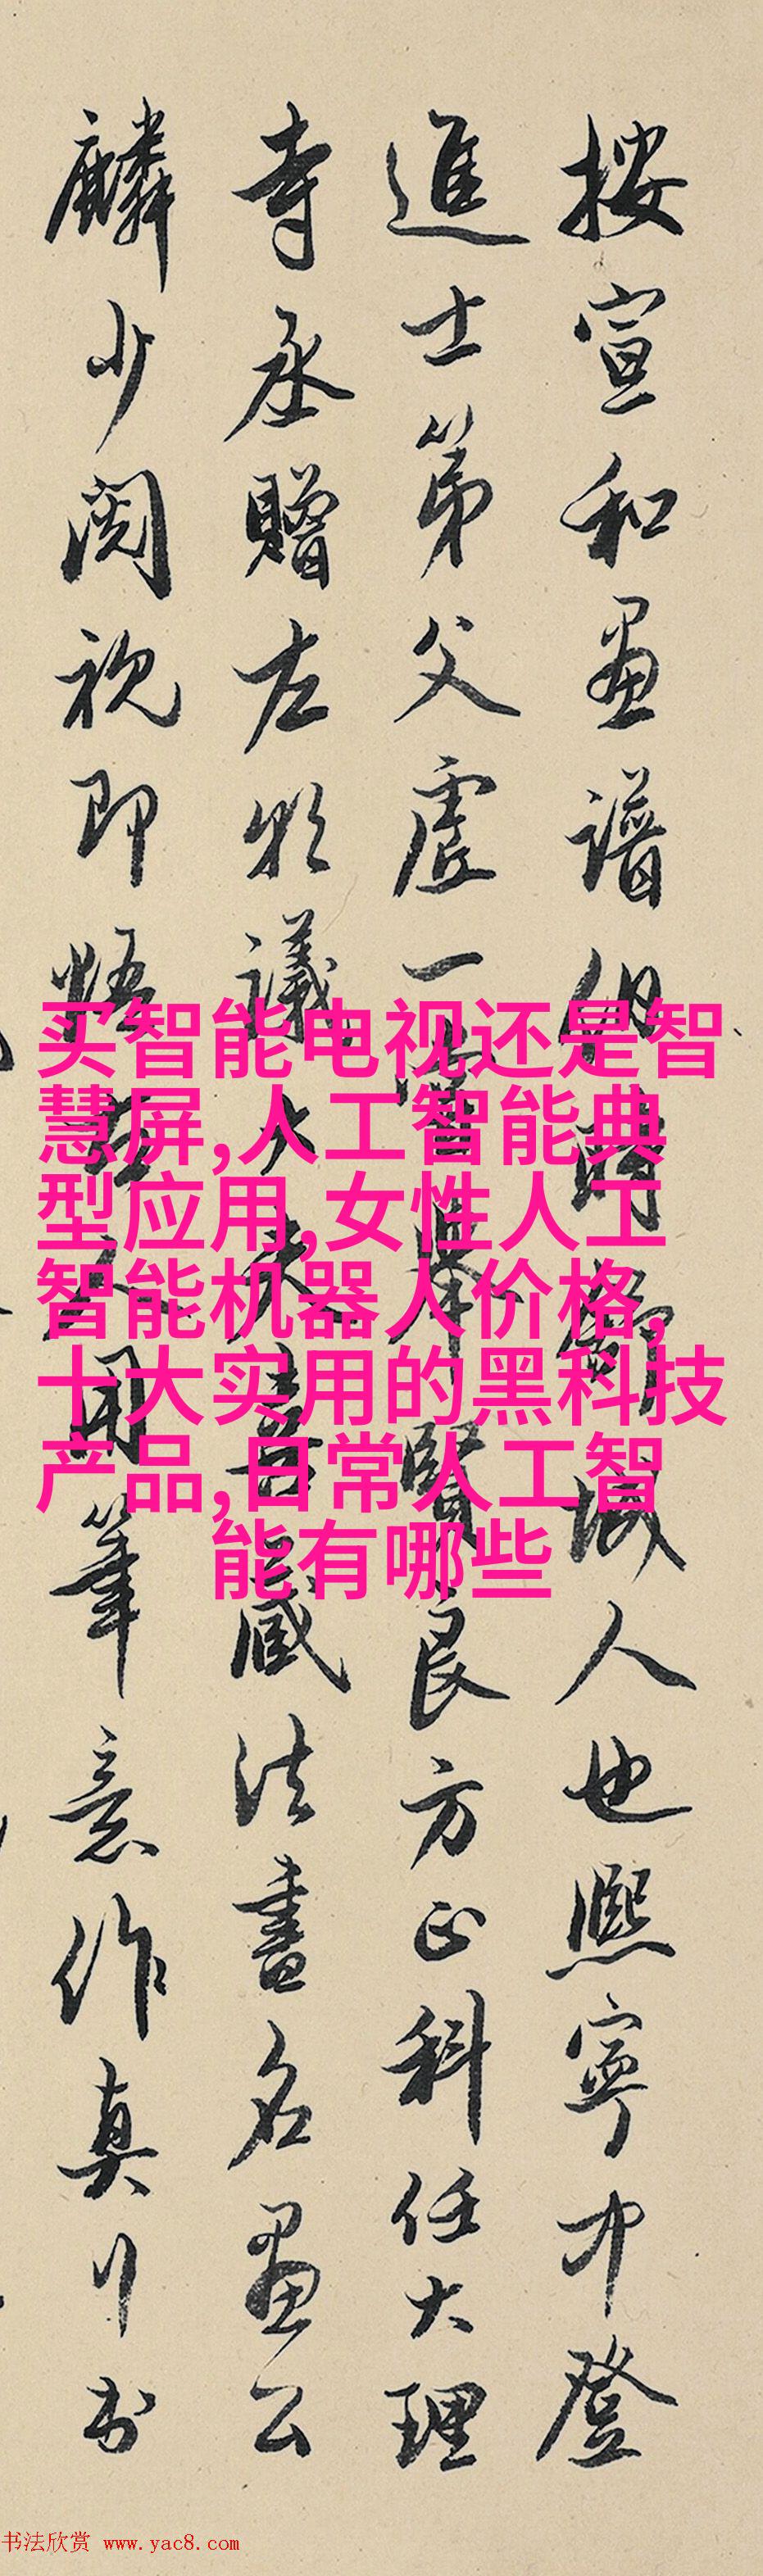 按宣和画谱伯时舒城人也熙宁中登
進士第父虚一尝举賢良方正科任大理
寺丞贈左朝議大夫喜藏法書名画公
麟少阅视即悟古人用筆意作真行书
买智能电视还是智
慧屏,人工智能典
型应用,女性人工
智能机器人价格,
十大实用的黑科技
产品,日常人工智
能有哪些
书法欣赏 www.yac8.com